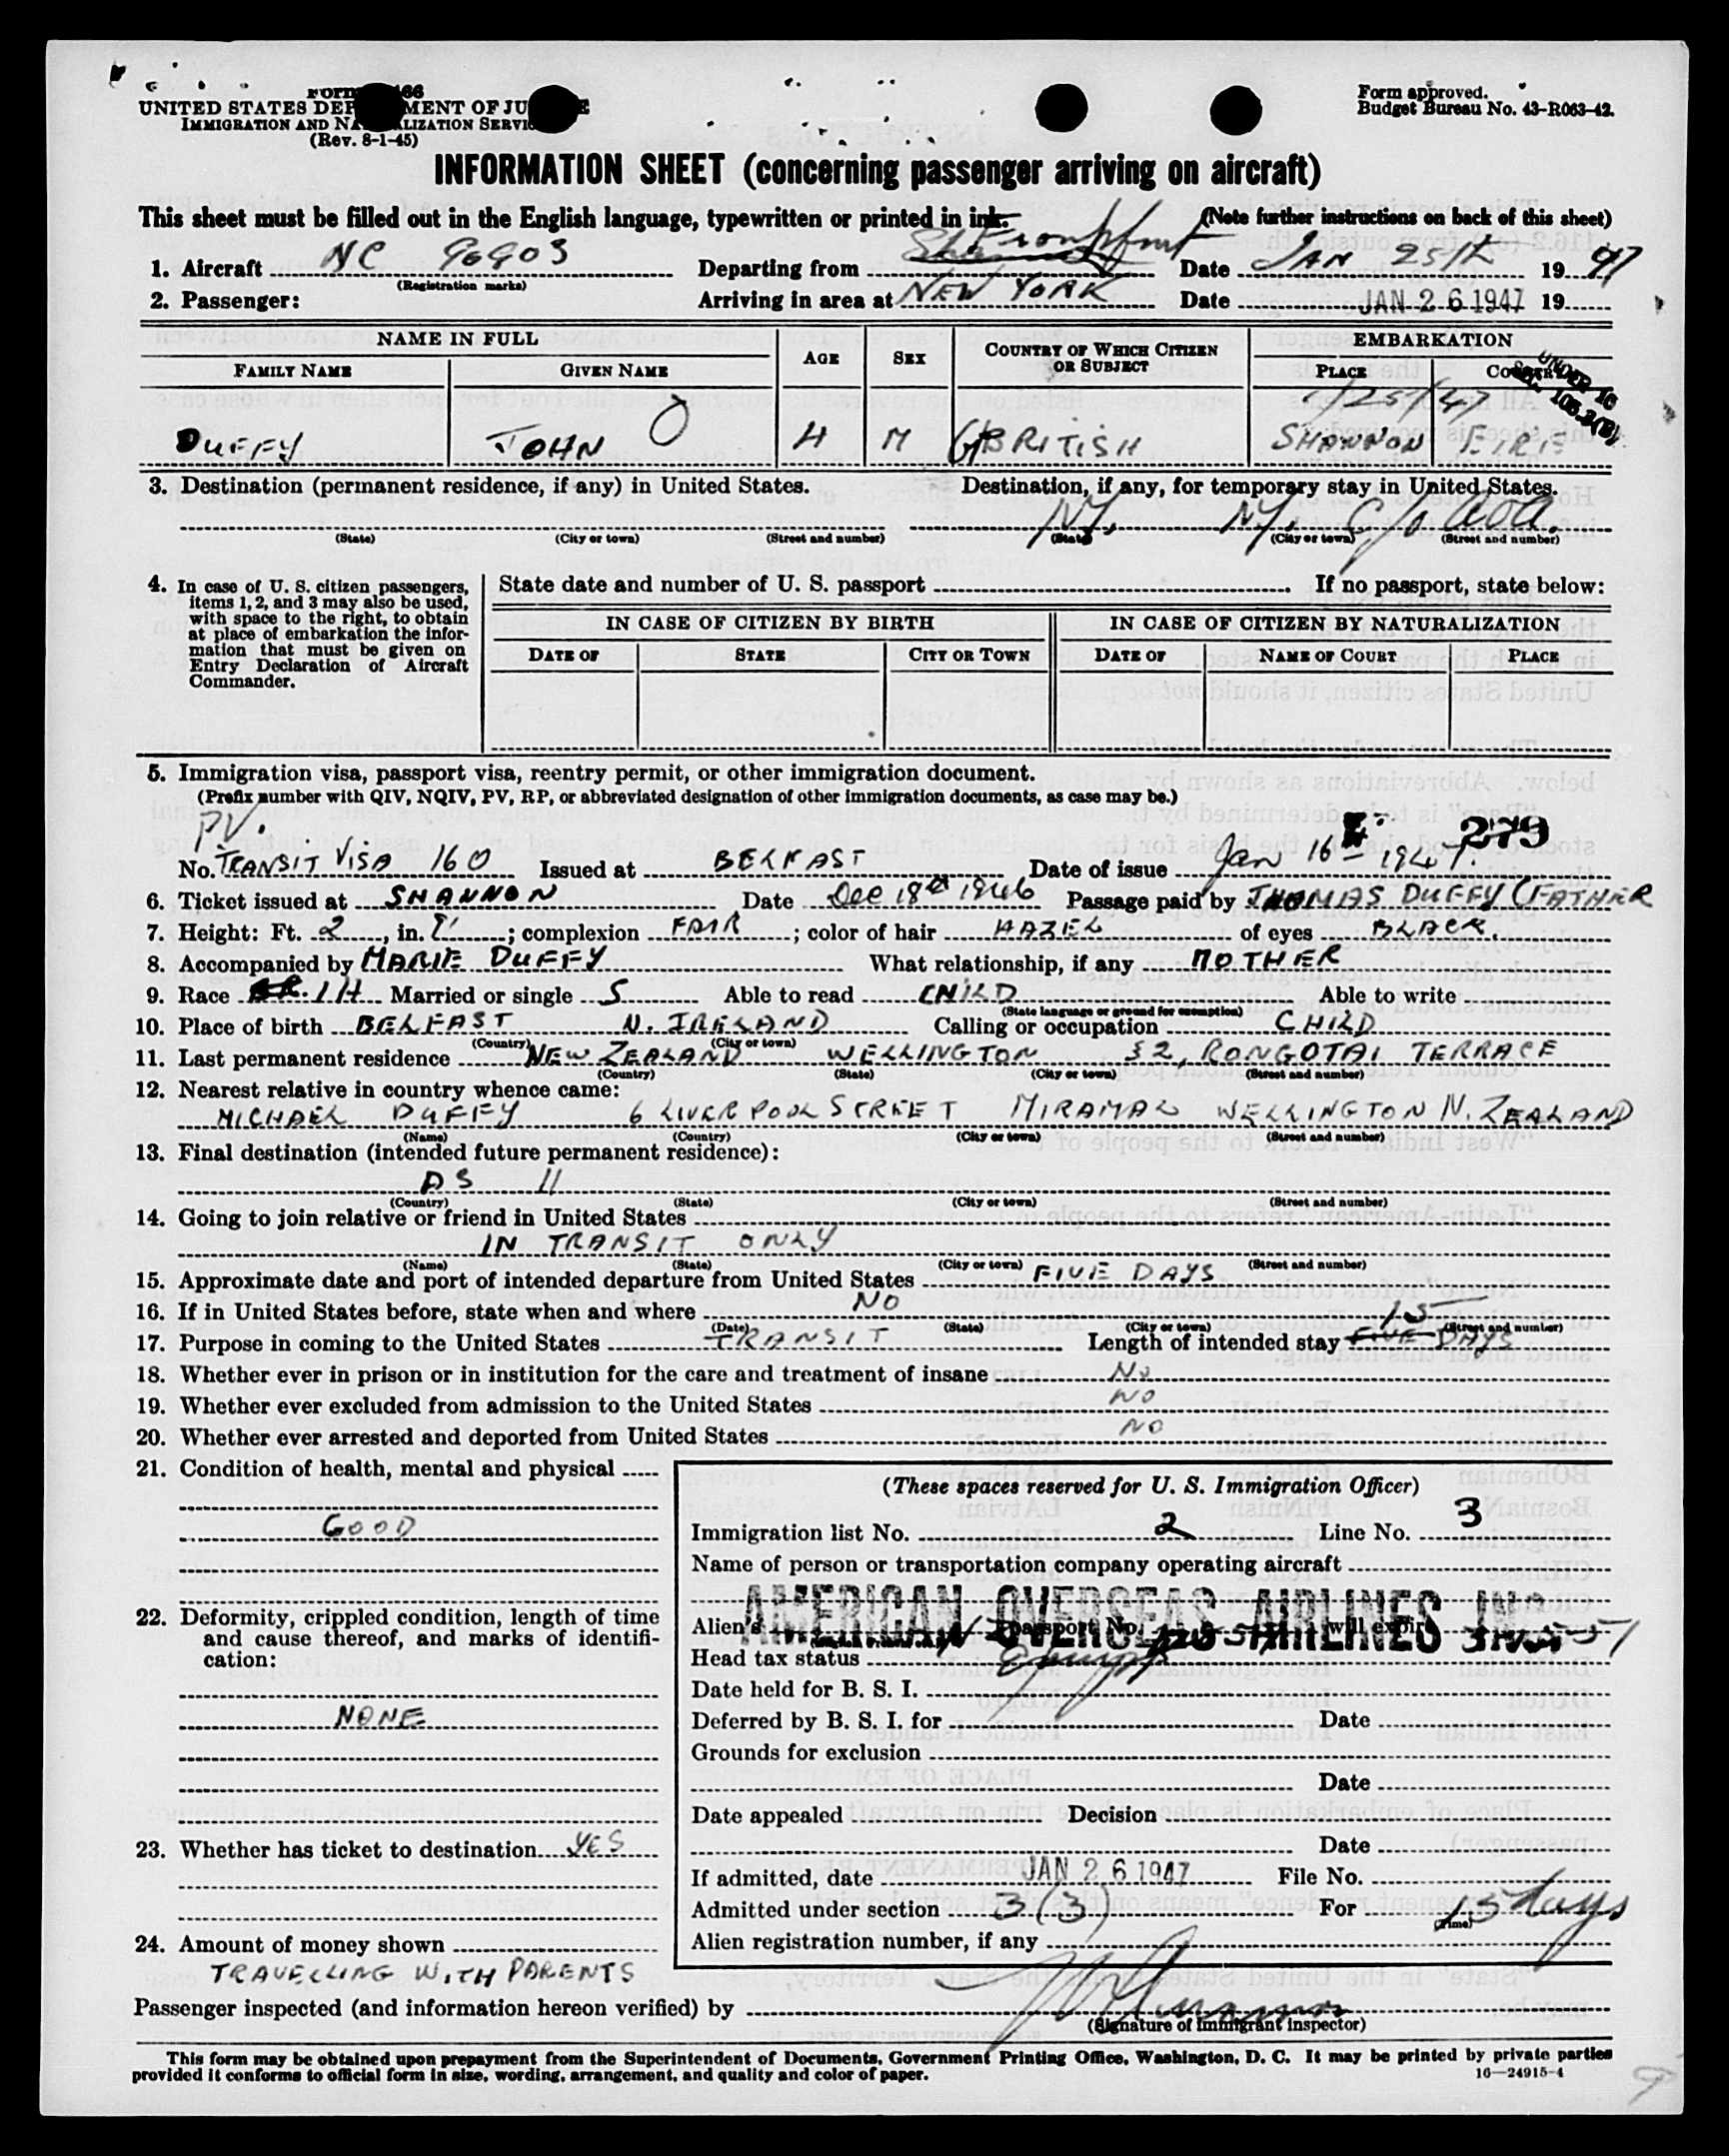 Form 466
UNITED STATES DEPARTMENT OF JUSTICE
IMMIGRATION AND NATURALIZATION SERVICE
(Rev. 8-1-45)
Form approved.
Budget Bureau No. 43-R063-42.
INFORMATION SHEET (concerning passenger arriving on aircraft)
This sheet must be filled out in the English language, typewritten or printed in ink. (Note further instructions on back of this sheet)
Frankfurt
1. Aircraft NC 90903 Departing from Date JAN 25th 1947
(Registration marks)
2. Passenger: Arriving in area at NEW YORK Date JAN 26 1947 19
NAME IN FULL AGE SEX COUNTRY OF WHICH CITIZEN OR SUBJECT EMBARKATION
FAMILY NAME GIVEN NAME PLACE COUNTRY
UNDER 16
1/25/47
DUFFY JOHN 4 M BRITISH SHANNON EIRE
3. Destination (permanent residence, if any) in United States. Destination, if any, for temporary stay in United States.
NY, NY, c/o AOA.
(State) (City or town) (Street and number) (State) (City or town) (Street and number)
4. In case of U. S. citizen passengers, items 1, 2, and 3 may also be used, with space to the right, to obtain at place of embarkation the information that must be given on Entry Declaration of Aircraft Commander.
State date and number of U. S. passport . If no passport, state below:
IN CASE OF CITIZEN BY BIRTH IN CASE OF CITIZEN BY NATURALIZATION
DATE OF STATE CITY OR TOWN DATE OF NAME OF COURT PLACE
5. Immigration visa, passport visa, reentry permit, or other immigration document.
(Prefix number with QIV, NQIV, PV, RP, or abbreviated designation of other immigration documents, as case may be.)
PV. 279
No. TRANSIT VISA 160 Issued at BELFAST Date of issue Jan 16 - 1947.
6. Ticket issued at SHANNON Date Dec 18th 1946 Passage paid by THOMAS DUFFY (FATHER
7. Height: Ft. 2, in. ; complexion FAIR ; color of hair HAZEL of eyes BLACK.
8. Accompanied by MARIE DUFFY What relationship, if any MOTHER
9. Race Married or single S Able to read CHILD Able to write
(State language or ground for exemption)
10. Place of birth BELFAST N. IRELAND Calling or occupation CHILD
(Country) (City or town)
11. Last permanent residence NEW ZEALAND WELLINGTON 32, RONGOTAI TERRACE
(Country) (State) (City or town) (Street and number)
12. Nearest relative in country whence came:
MICHAEL DUFFY 6 LIVERPOOL STREET MIRAMAR WELLINGTON N. ZEALAND
(Name) (Country) (City or town) (Street and number)
13. Final destination (intended future permanent residence):
AS 11
(Country) (State) (City or town) (Street and number)
14. Going to join relative or friend in United States
IN TRANSIT ONLY
(Name) (State) (City or town) (Street and number)
15. Approximate date and port of intended departure from United States FIVE DAYS
16. If in United States before, state when and where NO
(Date) (State) (City or town) (Street and number)
15
17. Purpose in coming to the United States TRANSIT Length of intended stay FIVE DAYS
18. Whether ever in prison or in institution for the care and treatment of insane No
19. Whether ever excluded from admission to the United States NO
20. Whether ever arrested and deported from United States NO
21. Condition of health, mental and physical
GOOD
22. Deformity, crippled condition, length of time and cause thereof, and marks of identification:
NONE
23. Whether has ticket to destination YES
24. Amount of money shown
TRAVELLING WITH PARENTS
(These spaces reserved for U. S. Immigration Officer)
Immigration list No. 2 Line No. 3
Name of person or transportation company operating aircraft
AMERICAN OVERSEAS AIRLINES INC.
Alien's passport No. will expire
Head tax status Exempt
Date held for B. S. I.
Deferred by B. S. I. for Date
Grounds for exclusion
Date
Date appealed Decision
Date
If admitted, date JAN 26 1947 File No.
Admitted under section 3(3) For 15 days
(Time)
Alien registration number, if any
Passenger inspected (and information hereon verified) by
(Signature of immigrant inspector)
This form may be obtained upon prepayment from the Superintendent of Documents, Government Printing Office, Washington, D. C. It may be printed by private parties
provided it conforms to official form in size, wording, arrangement, and quality and color of paper. 16—24915-4